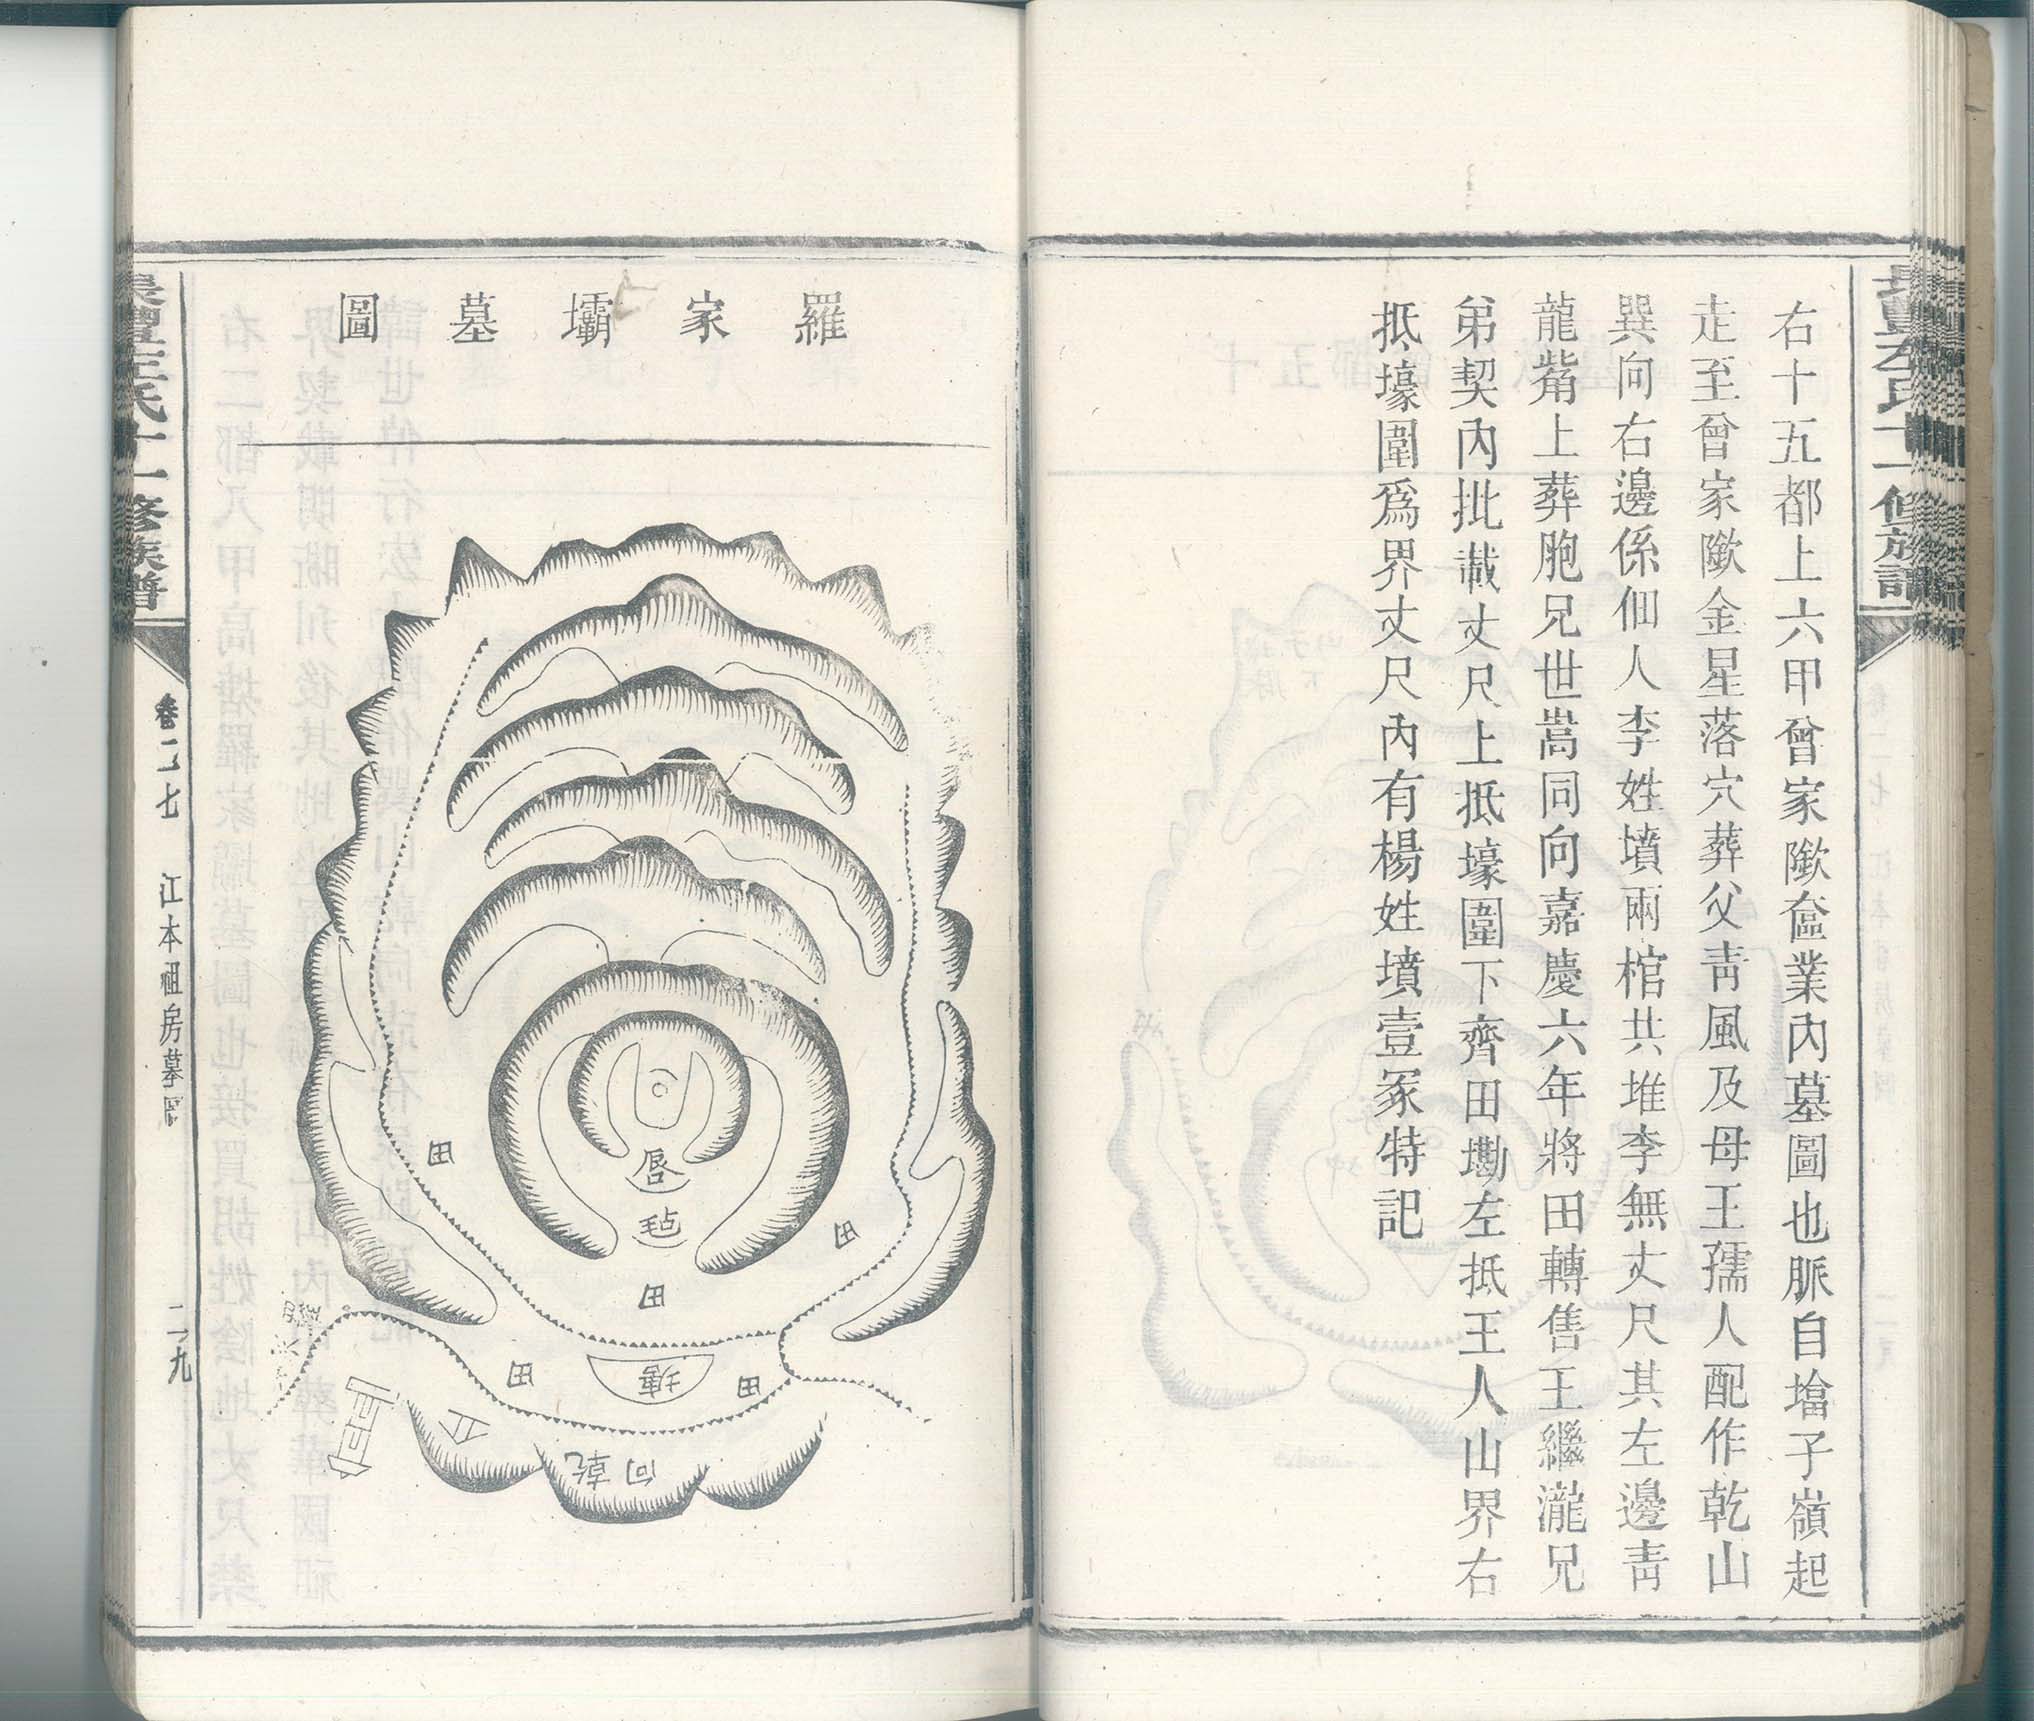 右十五都上六甲曾家隞奩業內墓圖也脈自墖子嶺起
走至曾家隞金星落穴葬父靑風及母王孺人配作乾山
巽向右邊係佃人李姓墳兩棺共堆李無丈尺其左邊靑
龍觜上葬胞兄世嵩同向嘉慶六年將田轉售王繼瀧兄
弟契內批載丈尺上抵壕圍下齊田墈左抵王人山界右
抵壕圍爲界丈尺內有楊姓墳壹冢特記
羅家壩墓圖
唇
毡
田
田
田
田
塘
田
向乾
仚
氏十一修族譜
卷二七
江本祖房墓
二九